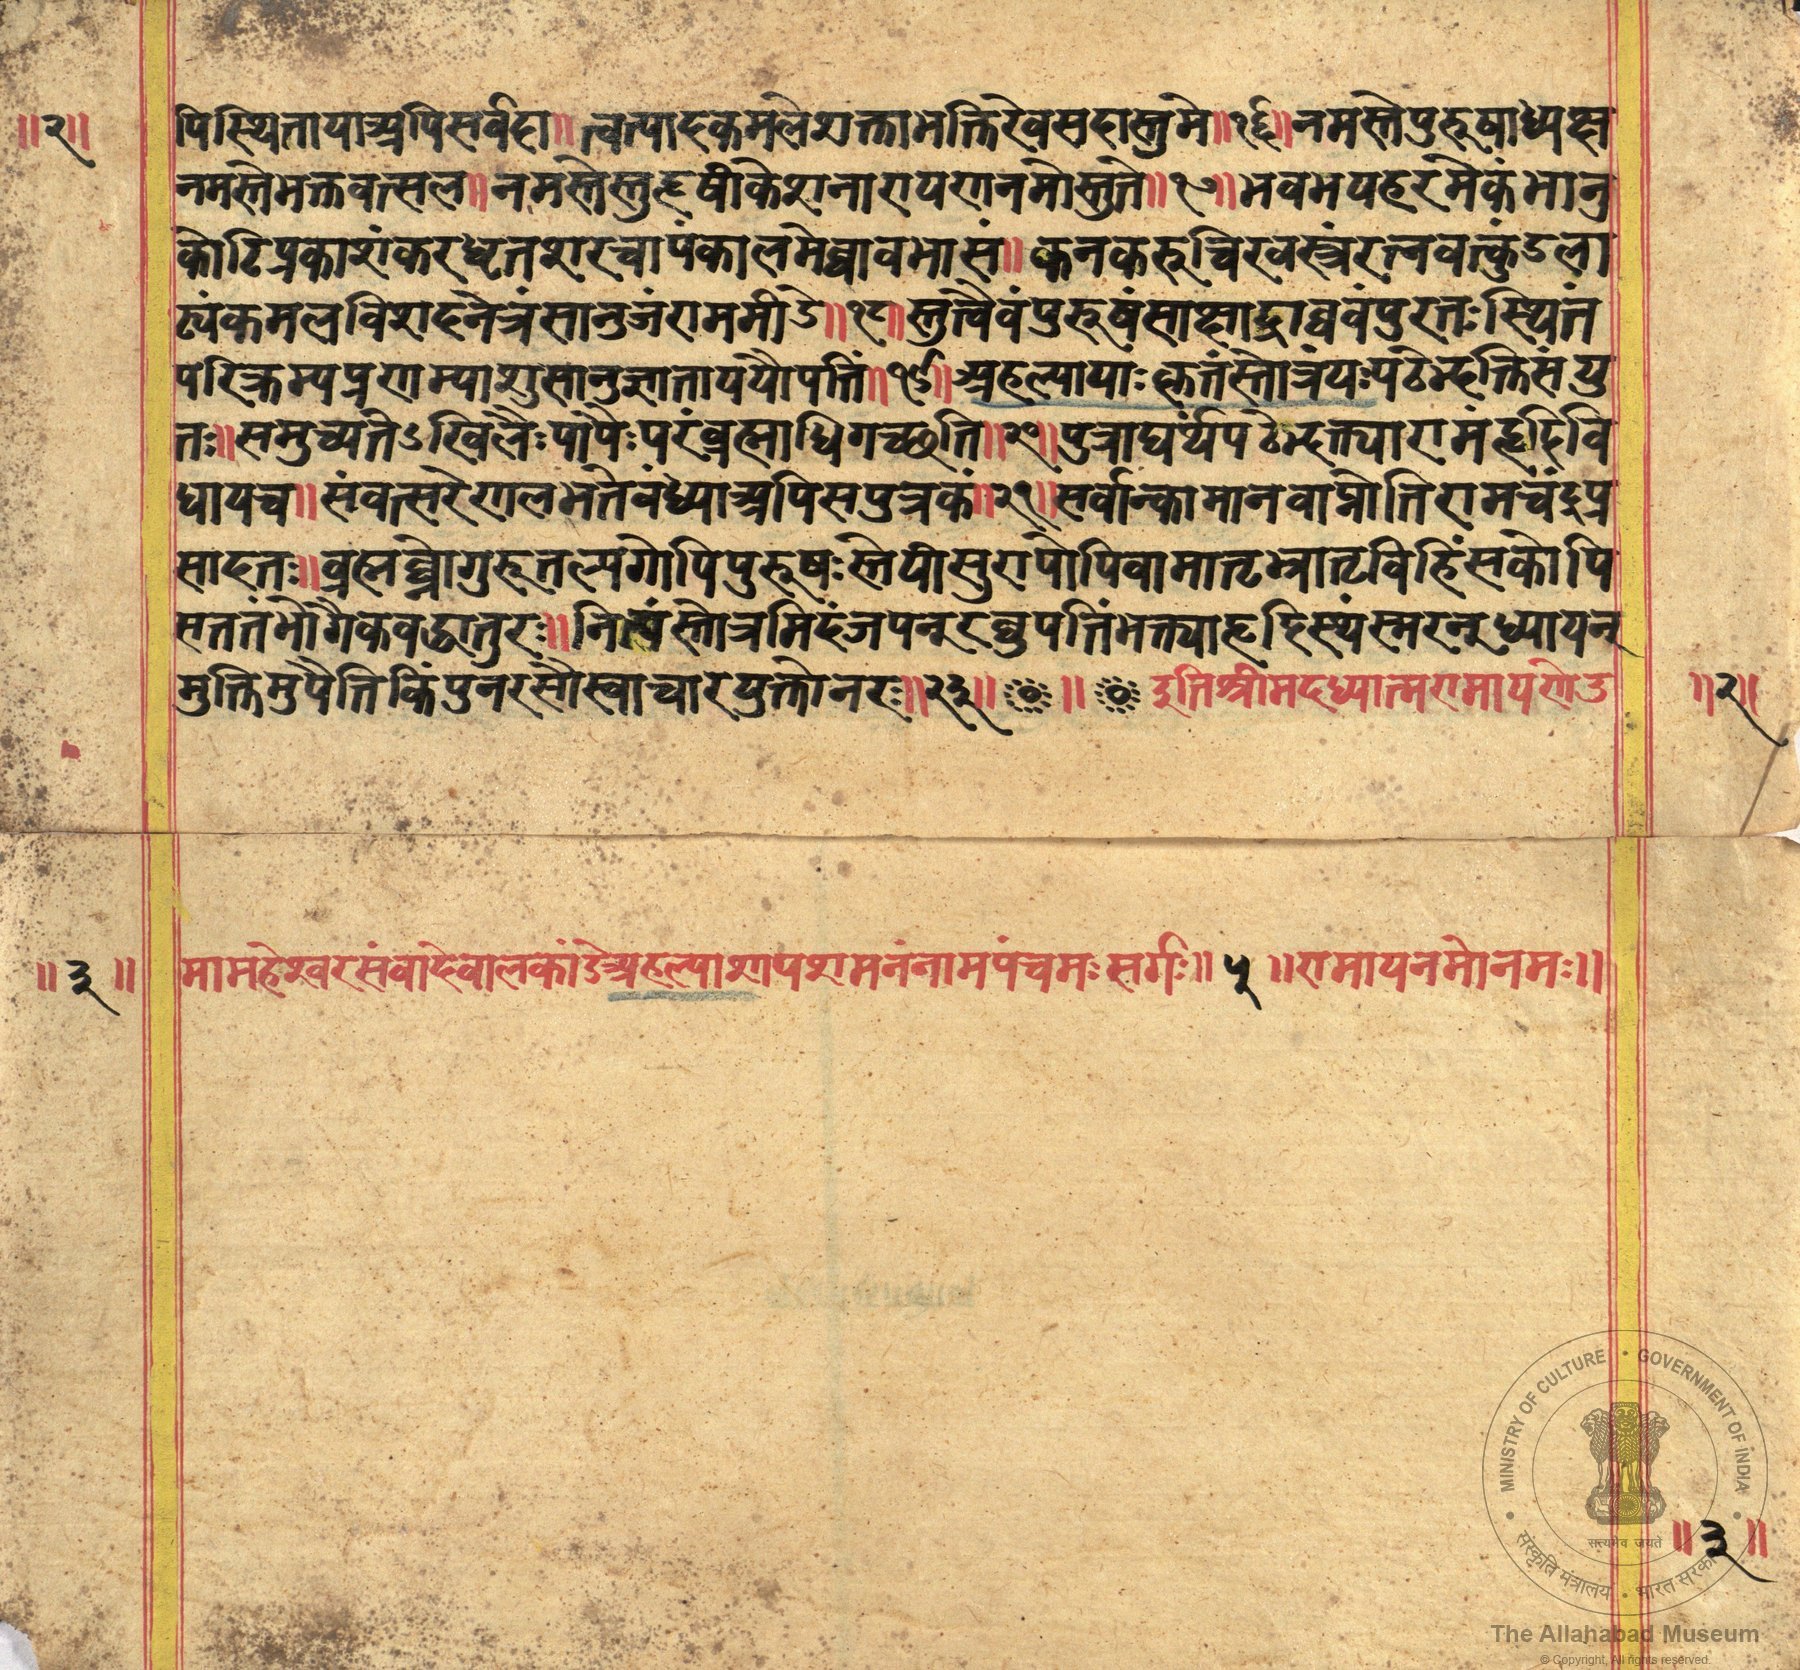 ॥२॥
पिस्थितायाअपिसर्वदा॥त्वत्पादकमलेशक्ताभक्तिरेवसदास्तुमे॥१६॥नमस्तेपुरूषाध्यक्ष
नमस्तेभक्तवत्सल॥नमस्तेस्तुहृषीकेशनारायणनमोस्तुते॥१७॥भवभयहरमेकंभानु
कोटिप्रकाशंकरधृतशरचापंकालमेघावभासं॥कनकरूचिरवस्त्रंरत्नवत्कुंडला
ढ्यंकमलविशदनेत्रंसानुजंराममीडे॥१८॥स्तुत्वैवंपुरूषंसाक्षाद्राघवंपुरतःस्थितं
परिक्रम्यप्रणम्याशुसानुज्ञाताययौपतिं॥१९॥अहल्यायाःकृतंस्तोत्रंयःपठेद्भक्तिसंयु
तः॥समुच्यतेऽखिलैःपापैःपरंब्रह्माधिगच्छति॥२०॥पुत्राद्यर्थंपठेद्भक्त्यारामंहृदिवि
धायच॥संवत्सरेणलभतेवंध्याअपिसपुत्रकं॥२१॥सर्वान्कामानवाप्नोतिरामचंद्रप्र
सादतः॥ब्रह्मघ्नोगुरूतल्पगोपिपुरूषःस्तेयीसुरापोपिवामातृभ्रातृविहिंसकोपि
सततंभोगैकबद्धातुरः॥नित्यंस्तोत्रमिदंजपन्रघुपतिंभक्त्याहृदिस्थंस्मरन्ध्यायन्
मुक्तिमुपैतिकिंपुनरसौस्वाचारयुक्तोनरः॥२३॥ ॥ इतिश्रीमदध्यात्मरामायणेउ
॥२॥
॥३॥
मामहेश्वरसंवादेबालकांडेअहल्याशापशमनंनामपंचमःसर्गः॥५॥रामायनमोनमः॥
MINISTRY OF CULTURE • GOVERNMENT OF INDIA
सत्यमेव जयते
संस्कृति मंत्रालय • भारत सरकार
॥३॥
The Allahabad Museum
© Copyright, All rights reserved.